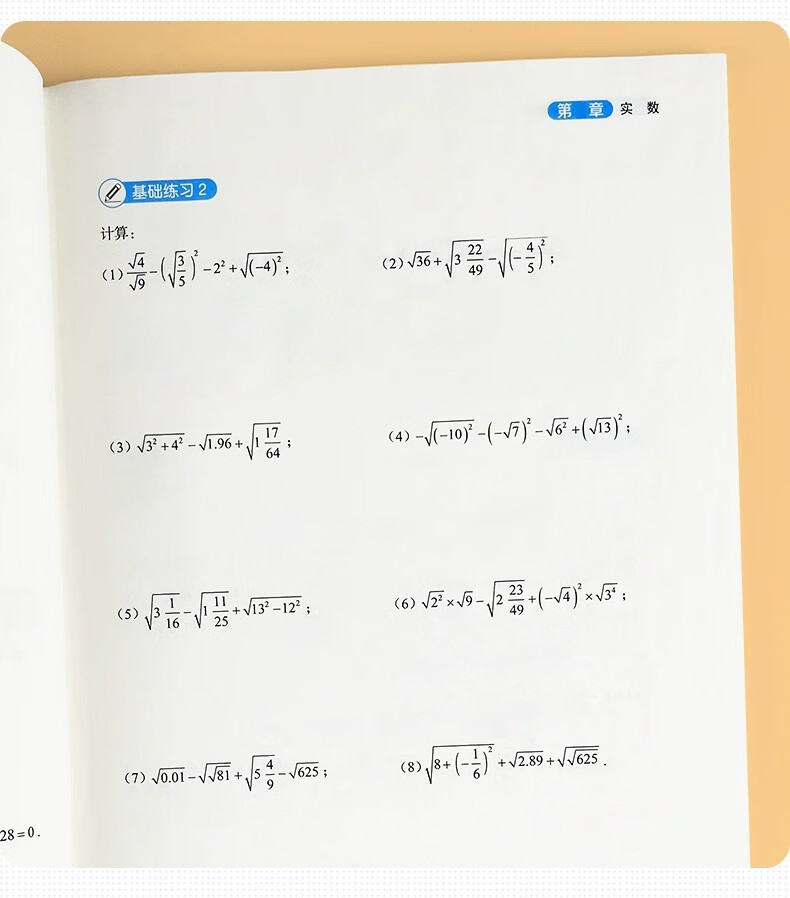 第 章 实 数
基础练习2
计算：
(1) $\frac{\sqrt{4}}{\sqrt{9}}-\left(\sqrt{\frac{3}{5}}\right)^2-2^2+\sqrt{(-4)^2}$；
(2) $\sqrt{36}+\sqrt{3\frac{22}{49}}-\sqrt{\left(-\frac{4}{5}\right)^2}$；
(3) $\sqrt{3^2+4^2}-\sqrt{1.96}+\sqrt{1\frac{17}{64}}$；
(4) $-\sqrt{(-10)^2}-\left(-\sqrt{7}\right)^2-\sqrt{6^2}+\left(\sqrt{13}\right)^2$；
(5) $\sqrt{3\frac{1}{16}}-\sqrt{1\frac{11}{25}}+\sqrt{13^2-12^2}$；
(6) $\sqrt{2^2}\times\sqrt{9}-\sqrt{2\frac{23}{49}}+\left(-\sqrt{4}\right)^2\times\sqrt{3^4}$；
(7) $\sqrt{0.01}-\sqrt{\sqrt{81}}+\sqrt{5\frac{4}{9}}-\sqrt{625}$；
(8) $\sqrt{8+\left(-\frac{1}{6}\right)^2}+\sqrt{2.89}+\sqrt{\sqrt{625}}$．
28=0．